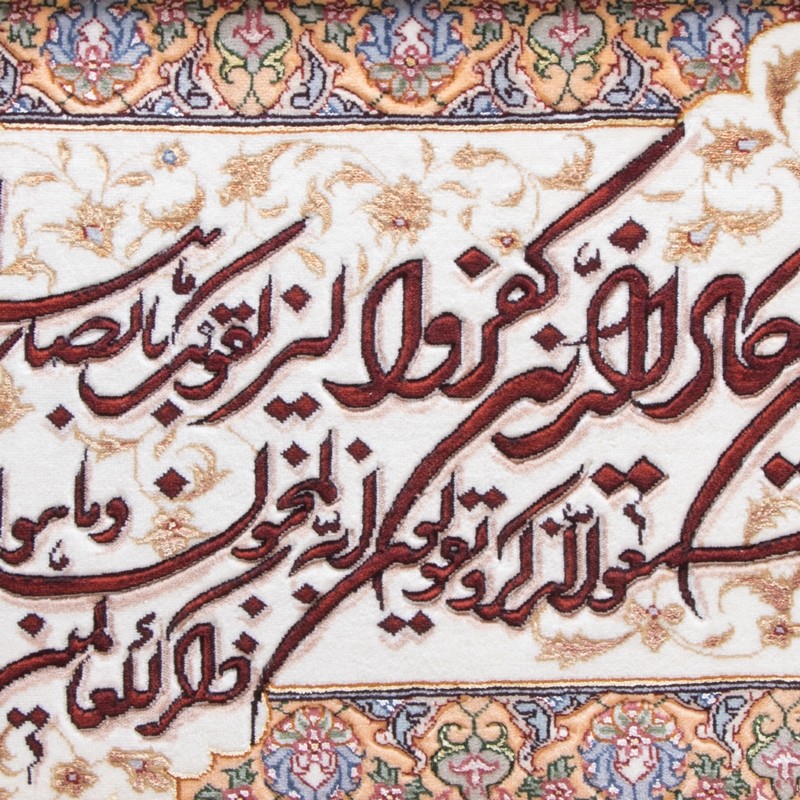 يكاد الذين كفروا ليزلقونك بابصار
سمعوا الذكر و يقولون انه لمجنون و ما هو ا
ذكر للعالمين